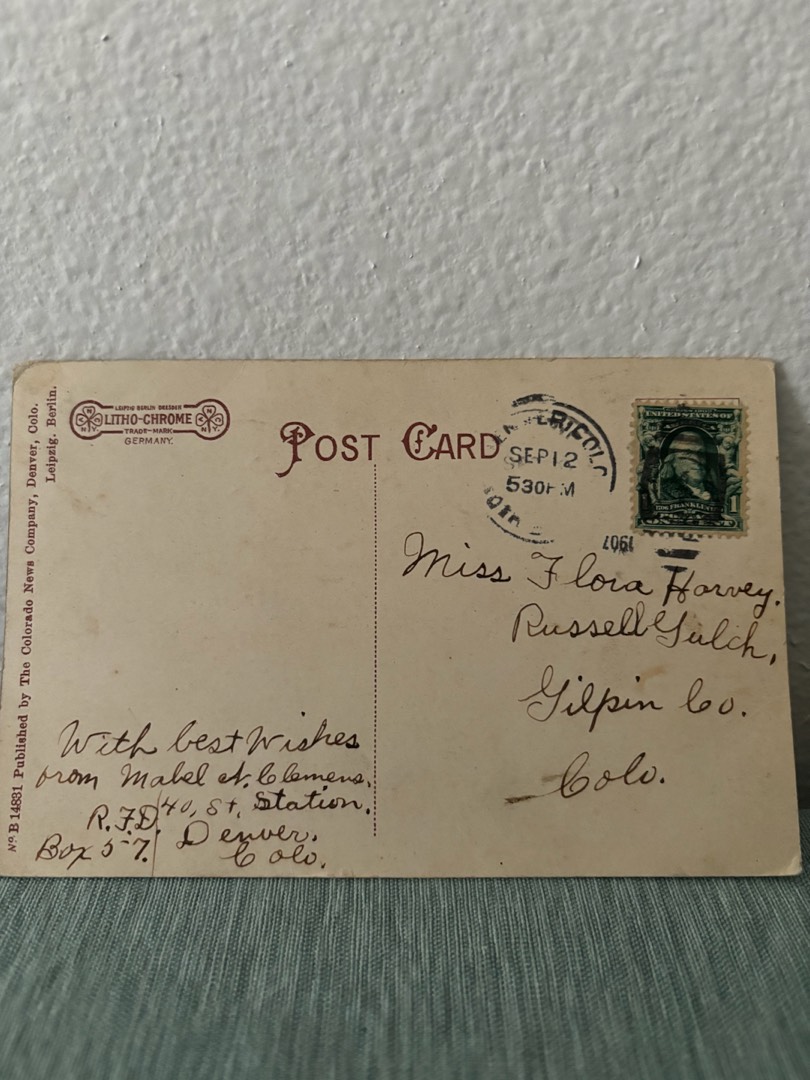 No. B 14831 Published by The Colorado News Company, Denver, Colo.
Leipzig. Berlin.
LEIPZIG BERLIN DRESDEN
LITHO-CHROME
TRADE-MARK
GERMANY.
POST CARD
SEP 12
530 PM
1907
UNITED STATES OF
FRANKLIN
1
ONE CENT
Miss Flora Harvey.
Russell Gulch,
Gilpin Co.
Colo.
With best Wishes
from Mabel N. Clemens.
R.F.D. 40, St, Station,
Box 57. Denver,
Colo.